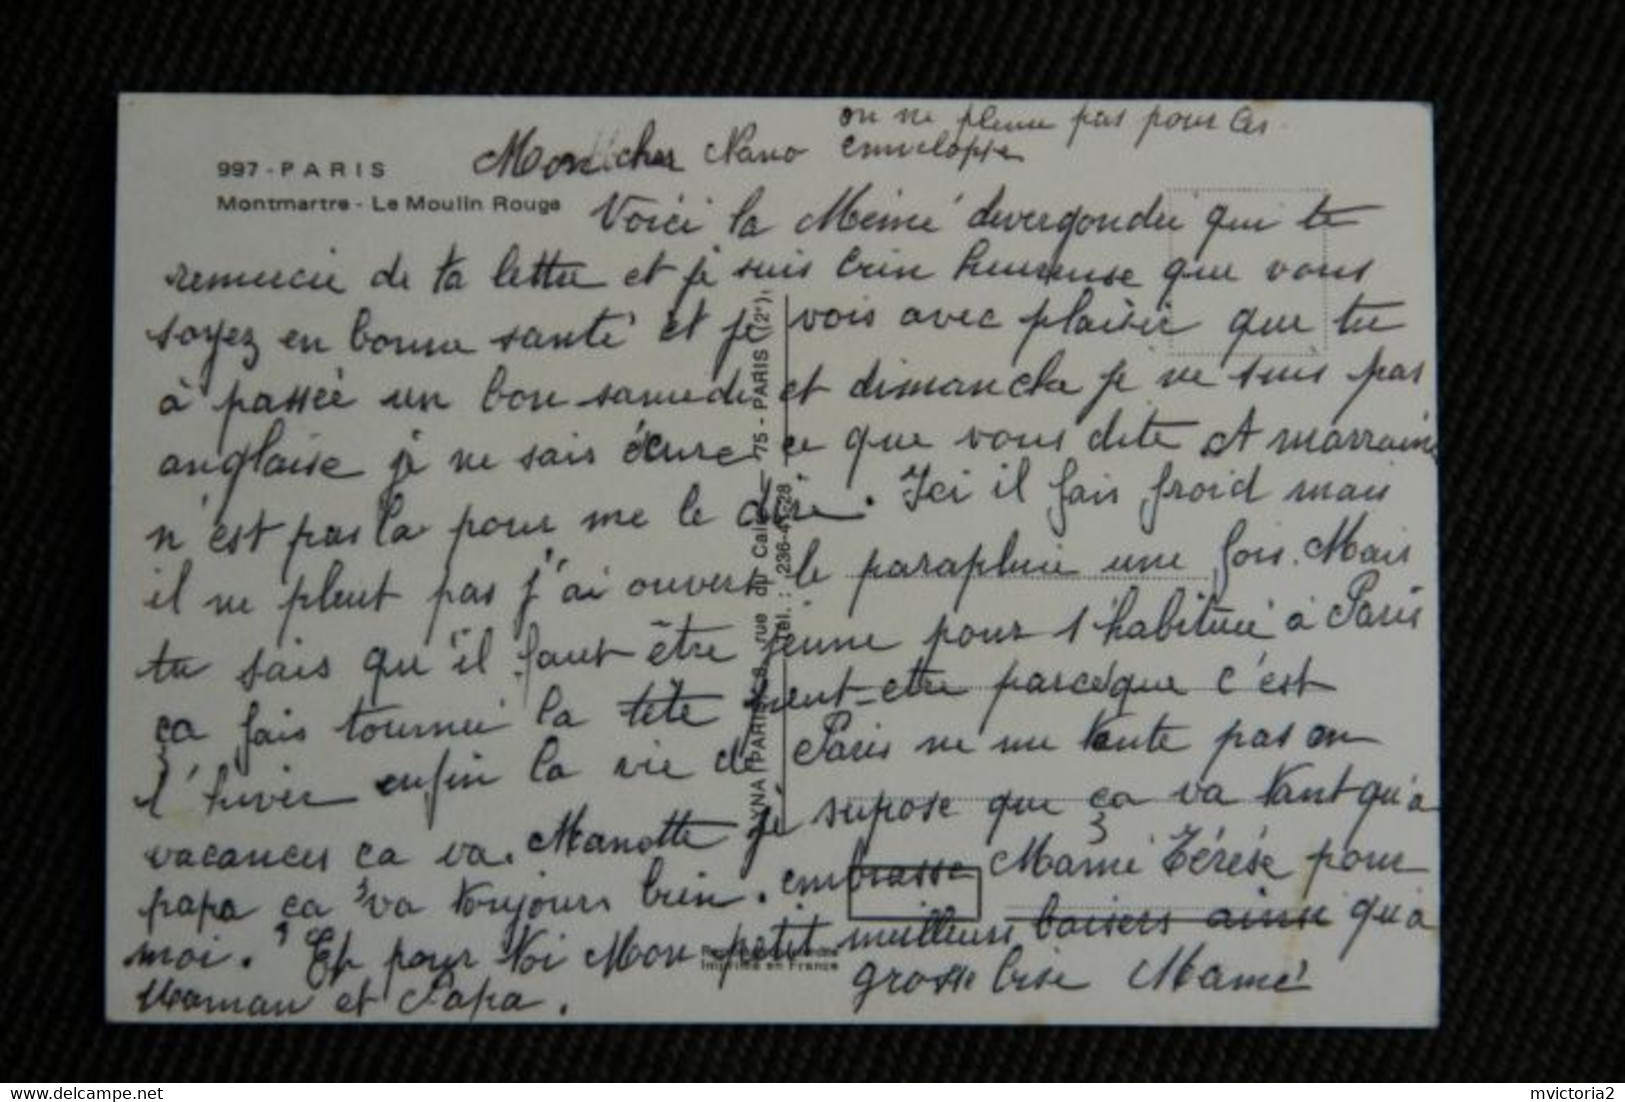 on ne pleure pas pour les
enveloppes
997 - PARIS
Montmartre - Le Moulin Rouge
Mon cher Nano
Voici la Mémé devergondée qui te
remercie de ta lettre et je suis bien heureuse que vous
soyez en bonne santé et je vois avec plaisir que tu
à passée un bon samedi et dimanche je ne suis pas
anglaise je ne sais écrire ce que vous dite et marraine
n'est pas la pour me le dire. Ici il fais froid mais
il ne pleut pas j'ai ouvert le parapluie une fois. Mais
tu sais qu'il faut être jeune pour s'habituée à Paris
ça fais tournée la tête peut-etre parceque c'est
l'hiver enfin la vie de Paris ne me tente pas en
vacances ça va. Manotte je supose que ça va tant qu'a
papa ça va toujours bien. embrasse Mamé Térése pour
moi. Et pour toi Mon petit meilleurs baisers ainsi qu'à
Maman et Papa.
grosse bise Mamé
75 - PARIS (2e)
rue du
Tél. : 236-
Imprimé en France
mvictoria2